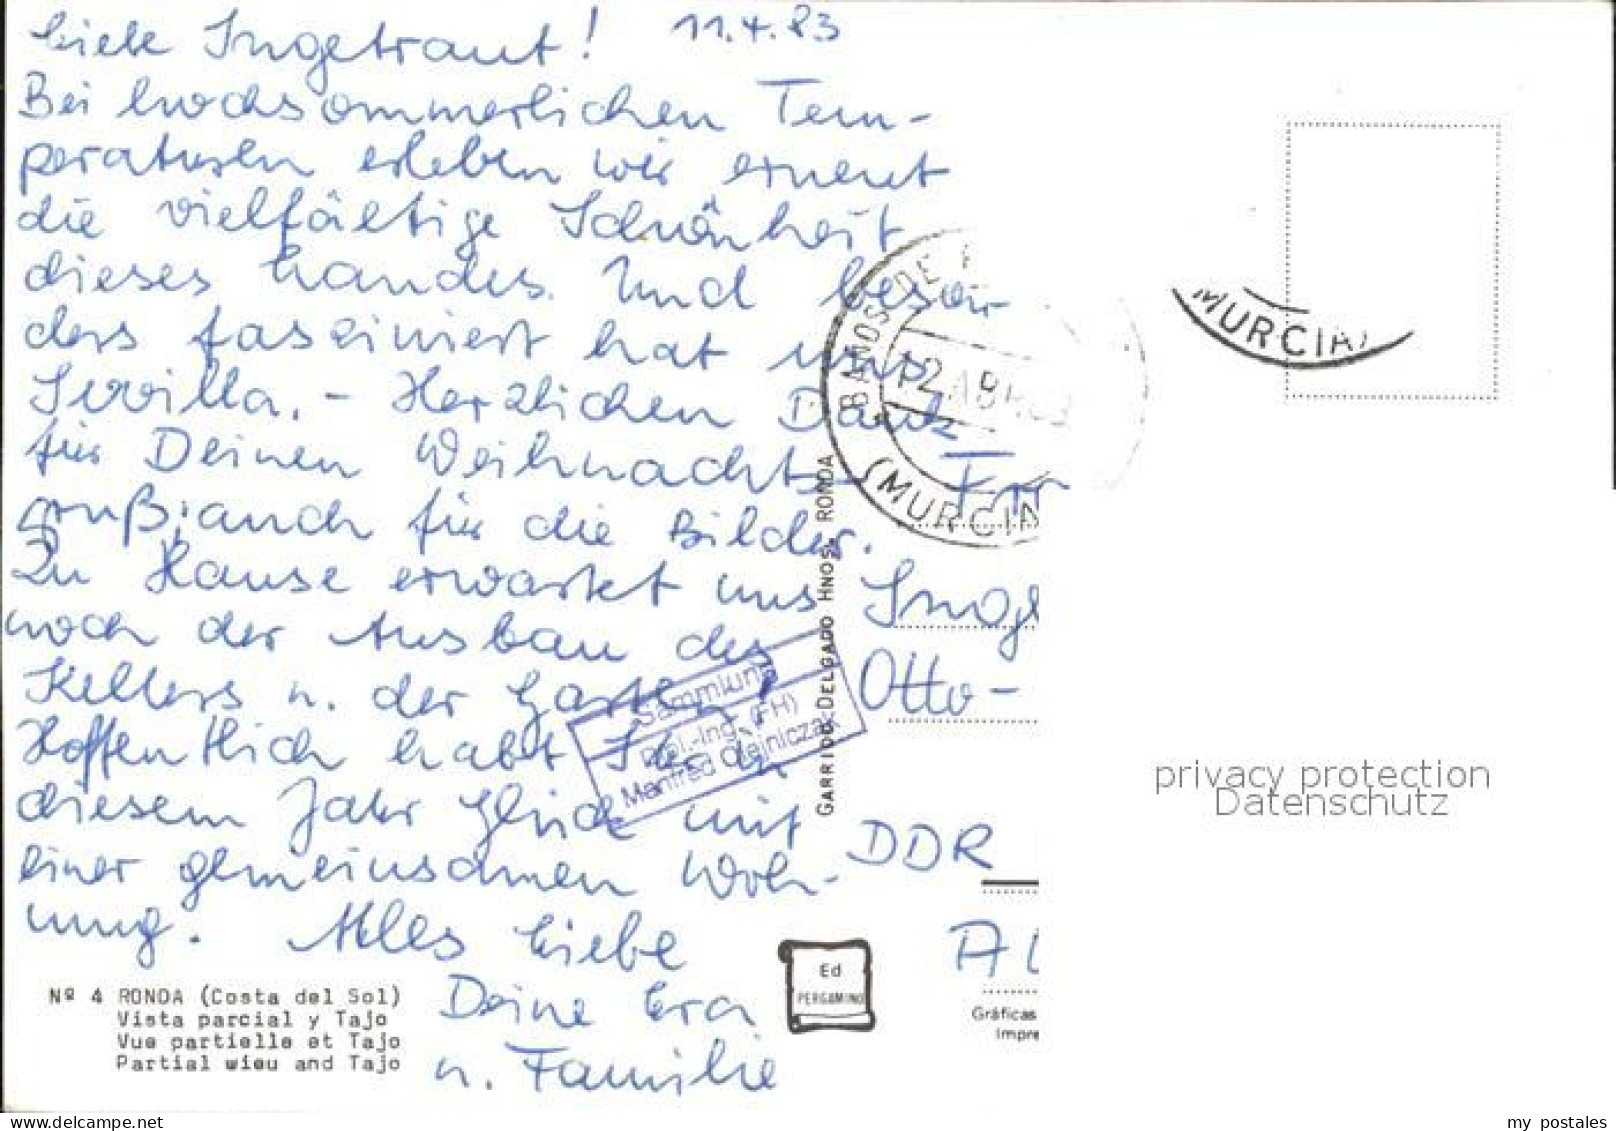 11.4.83
Liebe Ingetraut!
Bei hochsommerlichen Tem-
peraturen erleben wir erneut
die vielfältige Schönheit
dieses Landes. Und beson-
ders fasziniert hat uns
Sevilla. - Herzlichen Dank
für Deinen Weihnachts-
gruß, auch für die Bilder.
Zu Hause erwartet uns
noch der Ausbau des
Kellers u. der Garten.
Hoffentlich habt Ihr in
diesem Jahr Glück mit
einer gemeinsamen Woh-
nung. Alles Liebe
Deine
u. Familie
Nº 4 RONDA (Costa del Sol)
Vista parcial y Tajo
Vue partielle et Tajo
Partial wieu and Tajo
Sammlung
Dipl.-Ing. (FH)
Manfred Olejniczak
GARRIDO DELGADO HNOS. RONDA
BAÑOS DE
12 ABR. 83
(MURCIA
MURCIA)
Fr
Inge
Otto-
DDR
Ed
PERGAMINO
Gráficas
Impre
privacy protection
Datenschutz
www.delcampe.net
my_postales